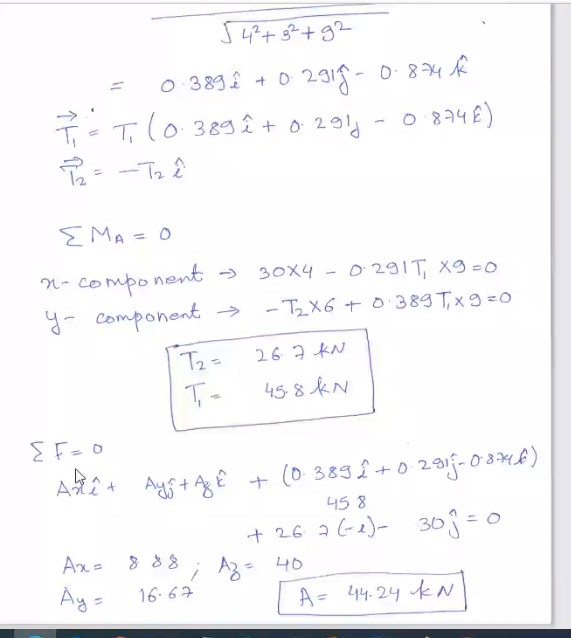 √4²+3²+9²
= 0.389î + 0.291ĵ - 0.874 k̂
T₁ = T₁ (0.389î + 0.291j - 0.874k̂)
T₂ = -T₂ î
ΣM_A = 0
x-component → 30×4 - 0.291T₁ ×9=0
y- component → -T₂×6 + 0.389T₁×9=0
T₂ = 26.7 kN
T₁ = 45.8 kN
ΣF=0
Axî + Ayĵ+Azk̂ + (0.389î+0.291j-0.874k̂)
45.8
+ 26.7(-i) - 30ĵ = 0
Ax = 8.88 ; Az = 40
Ay = 16.67
A = 44.24 kN